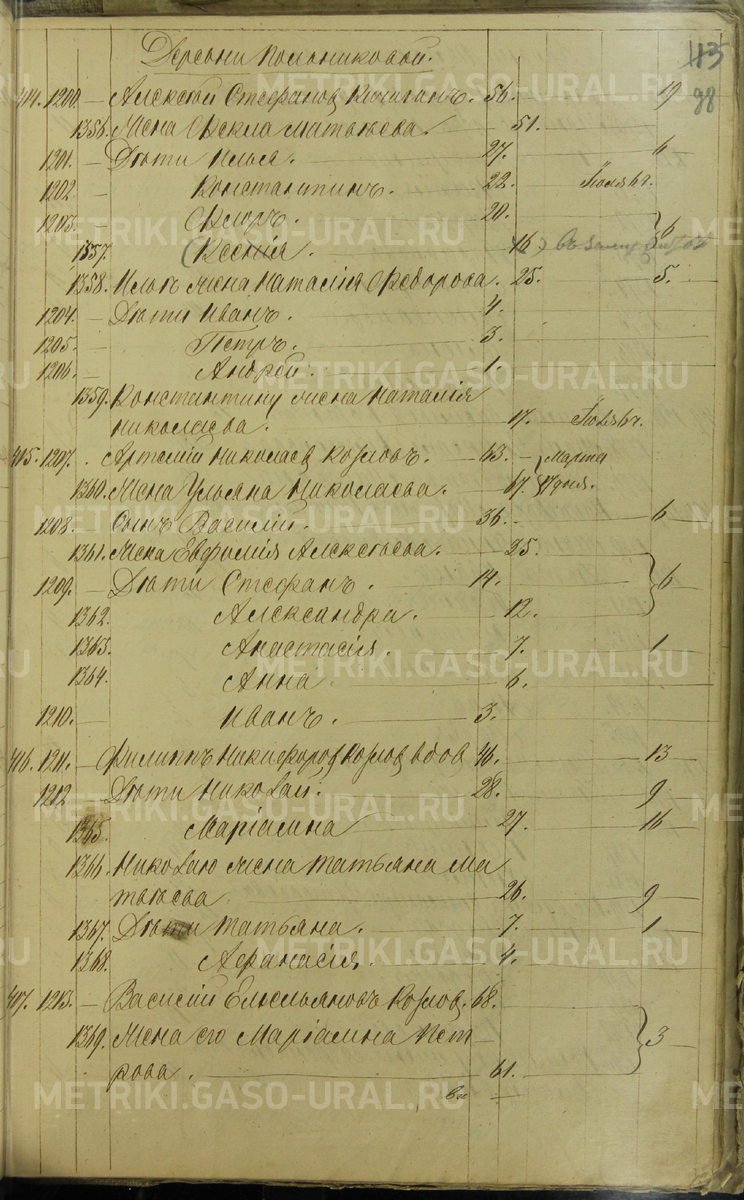 113
98
Деревни Кольниковой.
414. 1200. — Алексѣй Стефановъ Кичиганъ. 56. 19
1356. Жена Фекла Матвѣева. 51.
1201. — Дѣти Илья. 27. 6
1202. — Константинъ. 22.
1203. — Флоръ. 20. 6
1357. (Ксенія. 16)
1358. Ильѣ жена Наталія Ѳедорова. 25. 5.
1204. — Дѣти Иванъ. 4.
1205. — Петръ. 3.
1206. — Андрей. 1.
1359. Константину жена Наталія
Николаева. 17.
415. 1207. Артемій Николаевъ Козловъ. 63. — Марта
1360. Жена Ульяна Николаева. 67. Іуня.
1208. Сынъ Василій. 36. 6
1361. Жена Евфимія Алексѣева. 35.
1209. — Дѣти Стефанъ. 14. 6
1362. Александра. 12.
1363. Анастасія. 7. 1
1364. Анна. 6.
1210. — Иванъ. 3.
416. 1211. — Филиппъ Никифоровъ Козловъ вдов 46. 13
1212 — Дѣти Николай. 28. 9
1365. Маріамна 27. 16
1366. Николаю жена Татьяна Ма
твѣева 26. 9
1367. Дѣти Татьяна. 7. 1
1368. Афанасія. 4.
417. 1213. — Василій Емельяновъ Козлов. 68.
1369. Жена его Маріамна Пет 3
рова. 61.
METRIKI.GASO-URAL.RU